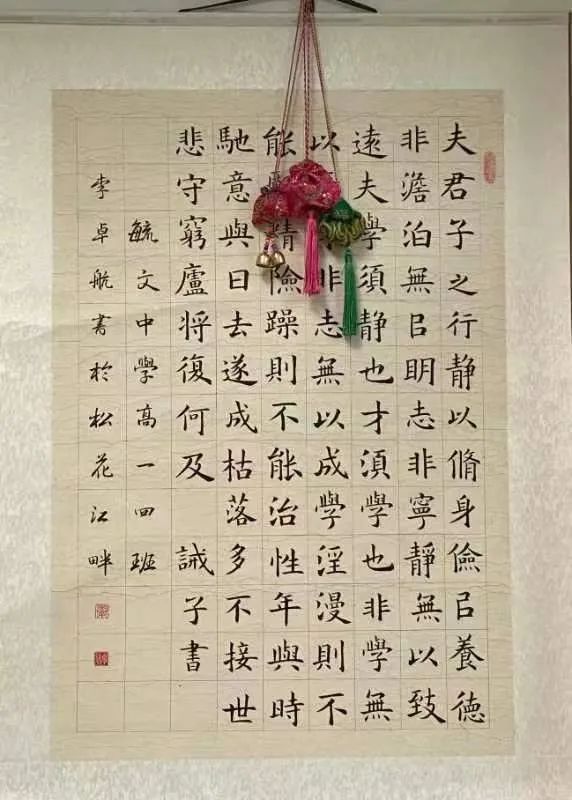 夫君子之行静以脩身儉㠯養德
非澹泊無㠯明志非寧靜無以致
遠夫學須静也才須學也非學無
以非志無以成學淫漫則不
能精險躁則不能治性年與時
馳意與日去遂成枯落多不接世
悲守窮廬将復何及 誡子書
毓文中學高一四班
李卓航書於松花江畔